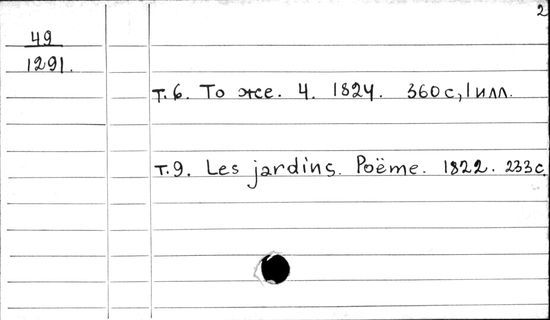 2
49
1291.
т.6. То же. 4. 1824. 360 с, 1 илл.
т.9. Les jardins. Poëme. 1822. 233 с.